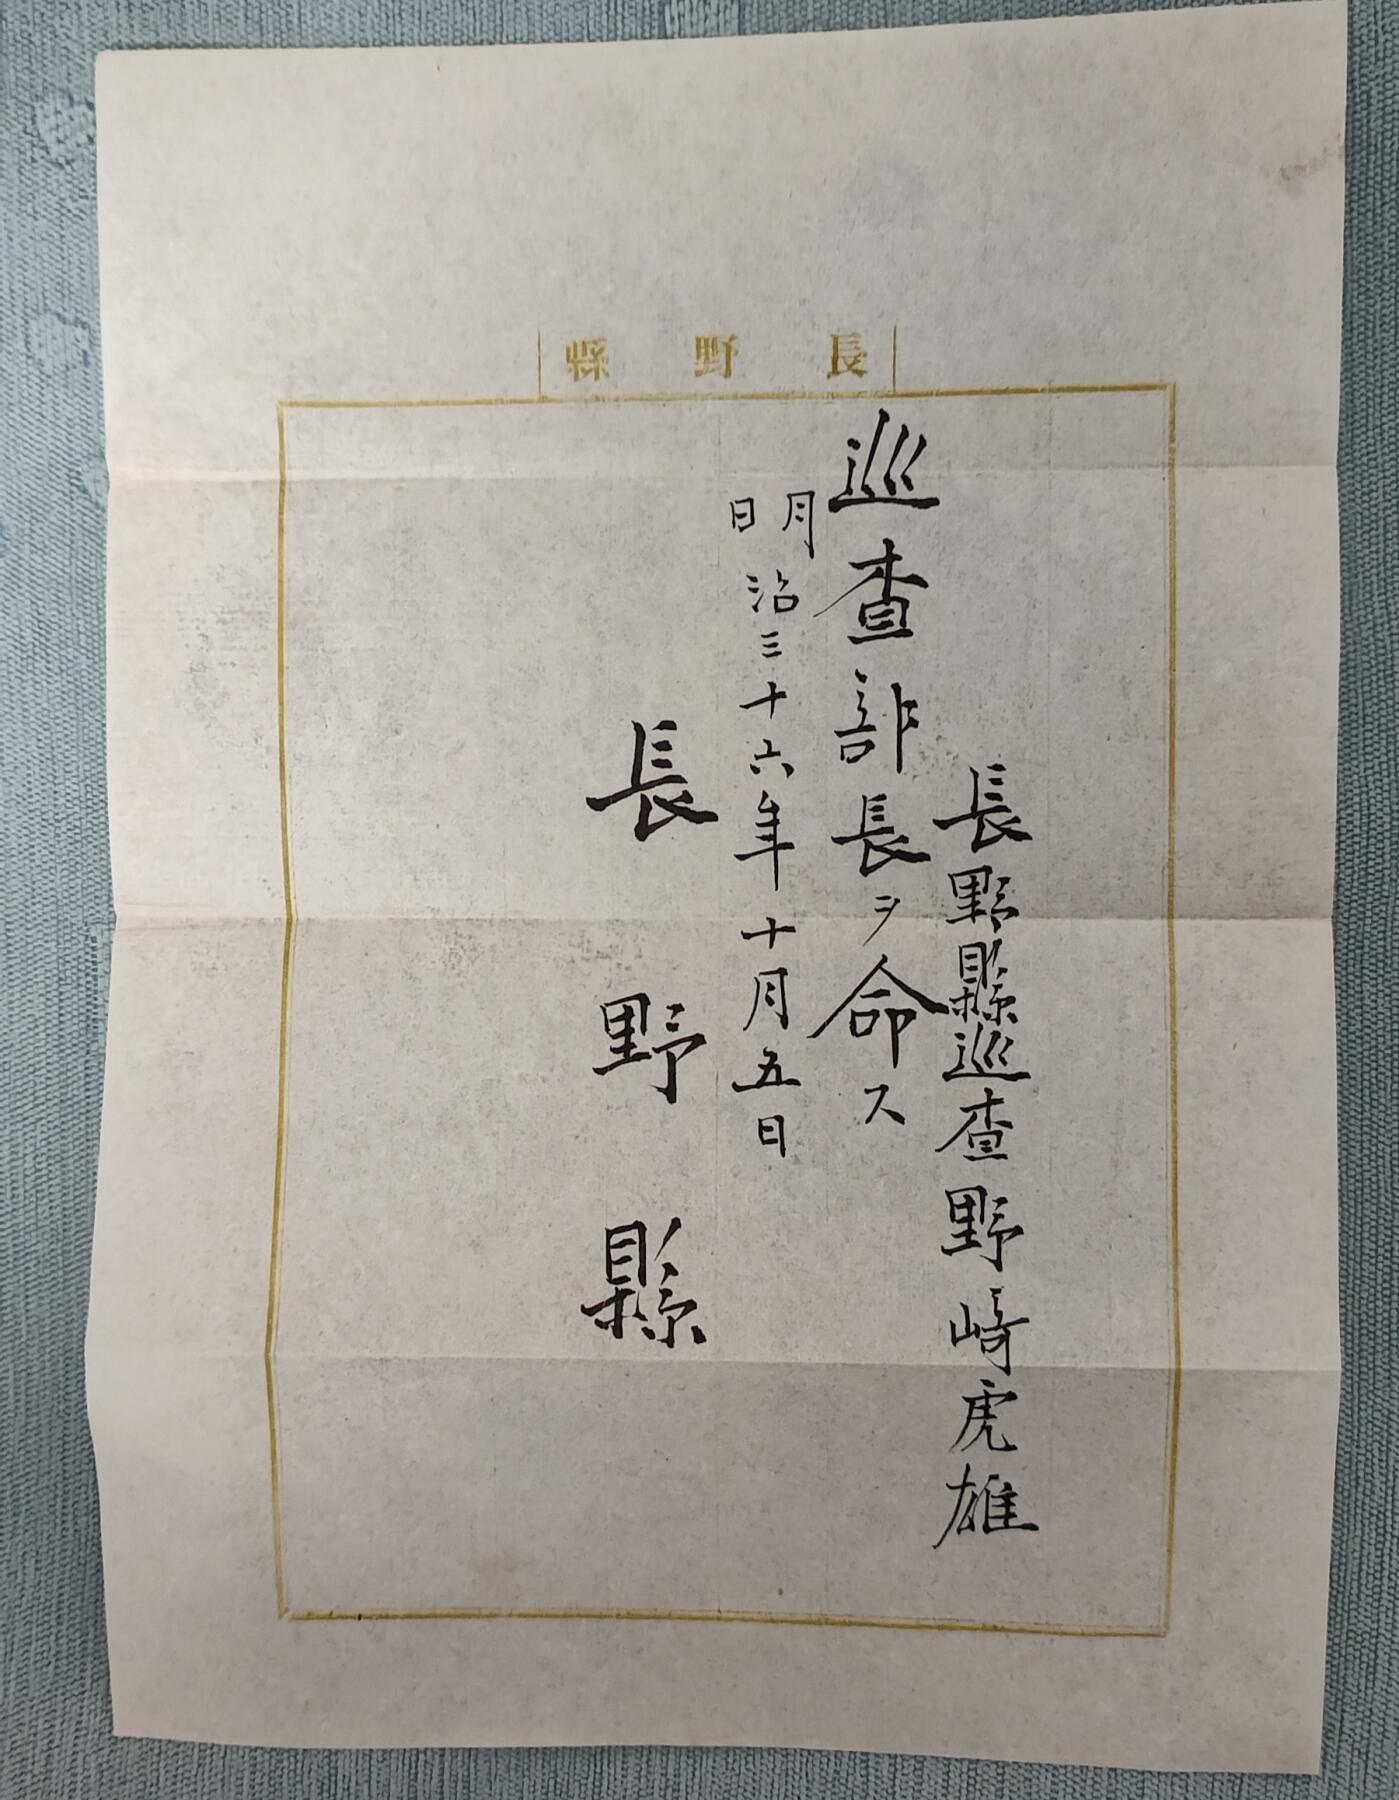 長野縣
長野縣巡査野崎虎雄
巡査部長ヲ命ス
明治三十六年十月五日
長野縣